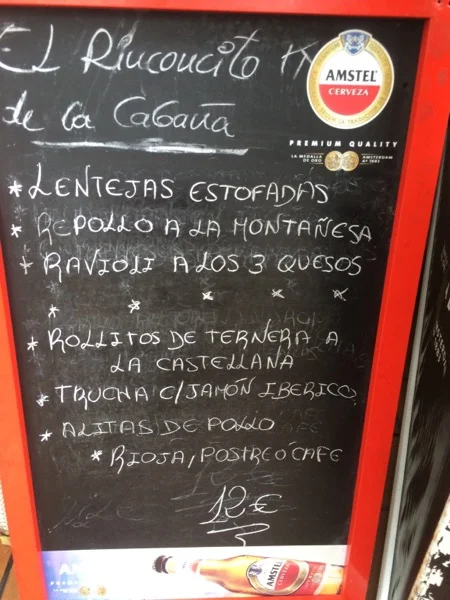 El Rinconcito
de la Cabaña
AMSTEL
CERVEZA
PREMIUM QUALITY
LA MEDALLA DE ORO
AMSTERDAM Aº 1883
* LENTEJAS ESTOFADAS
* REPOLLO A LA MONTAÑESA
* RAVIOLI A LOS 3 QUESOS
* * * * *
* ROLLITOS DE TERNERA A
LA CASTELLANA
* TRUCHA C/JAMÓN IBERICO
* ALITAS DE POLLO
* RIOJA, POSTRE Ó CAFE
12€
AMSTEL